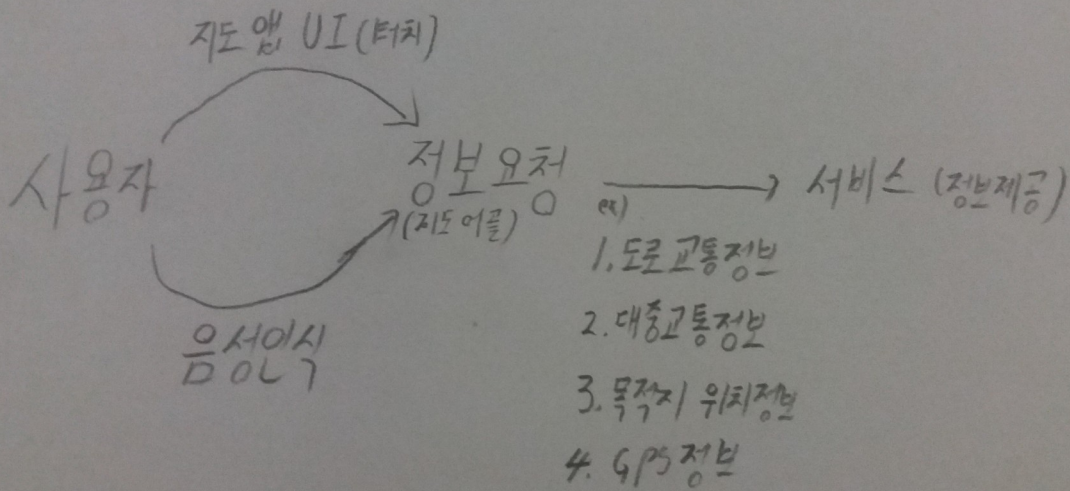 지도 앱 UI (터치)
사용자
정보요청
(지도어플)
서비스 (정보제공)
ex)
1. 도로교통정보
2. 대중교통정보
3. 목적지 위치정보
4. GPS정보
음성인식